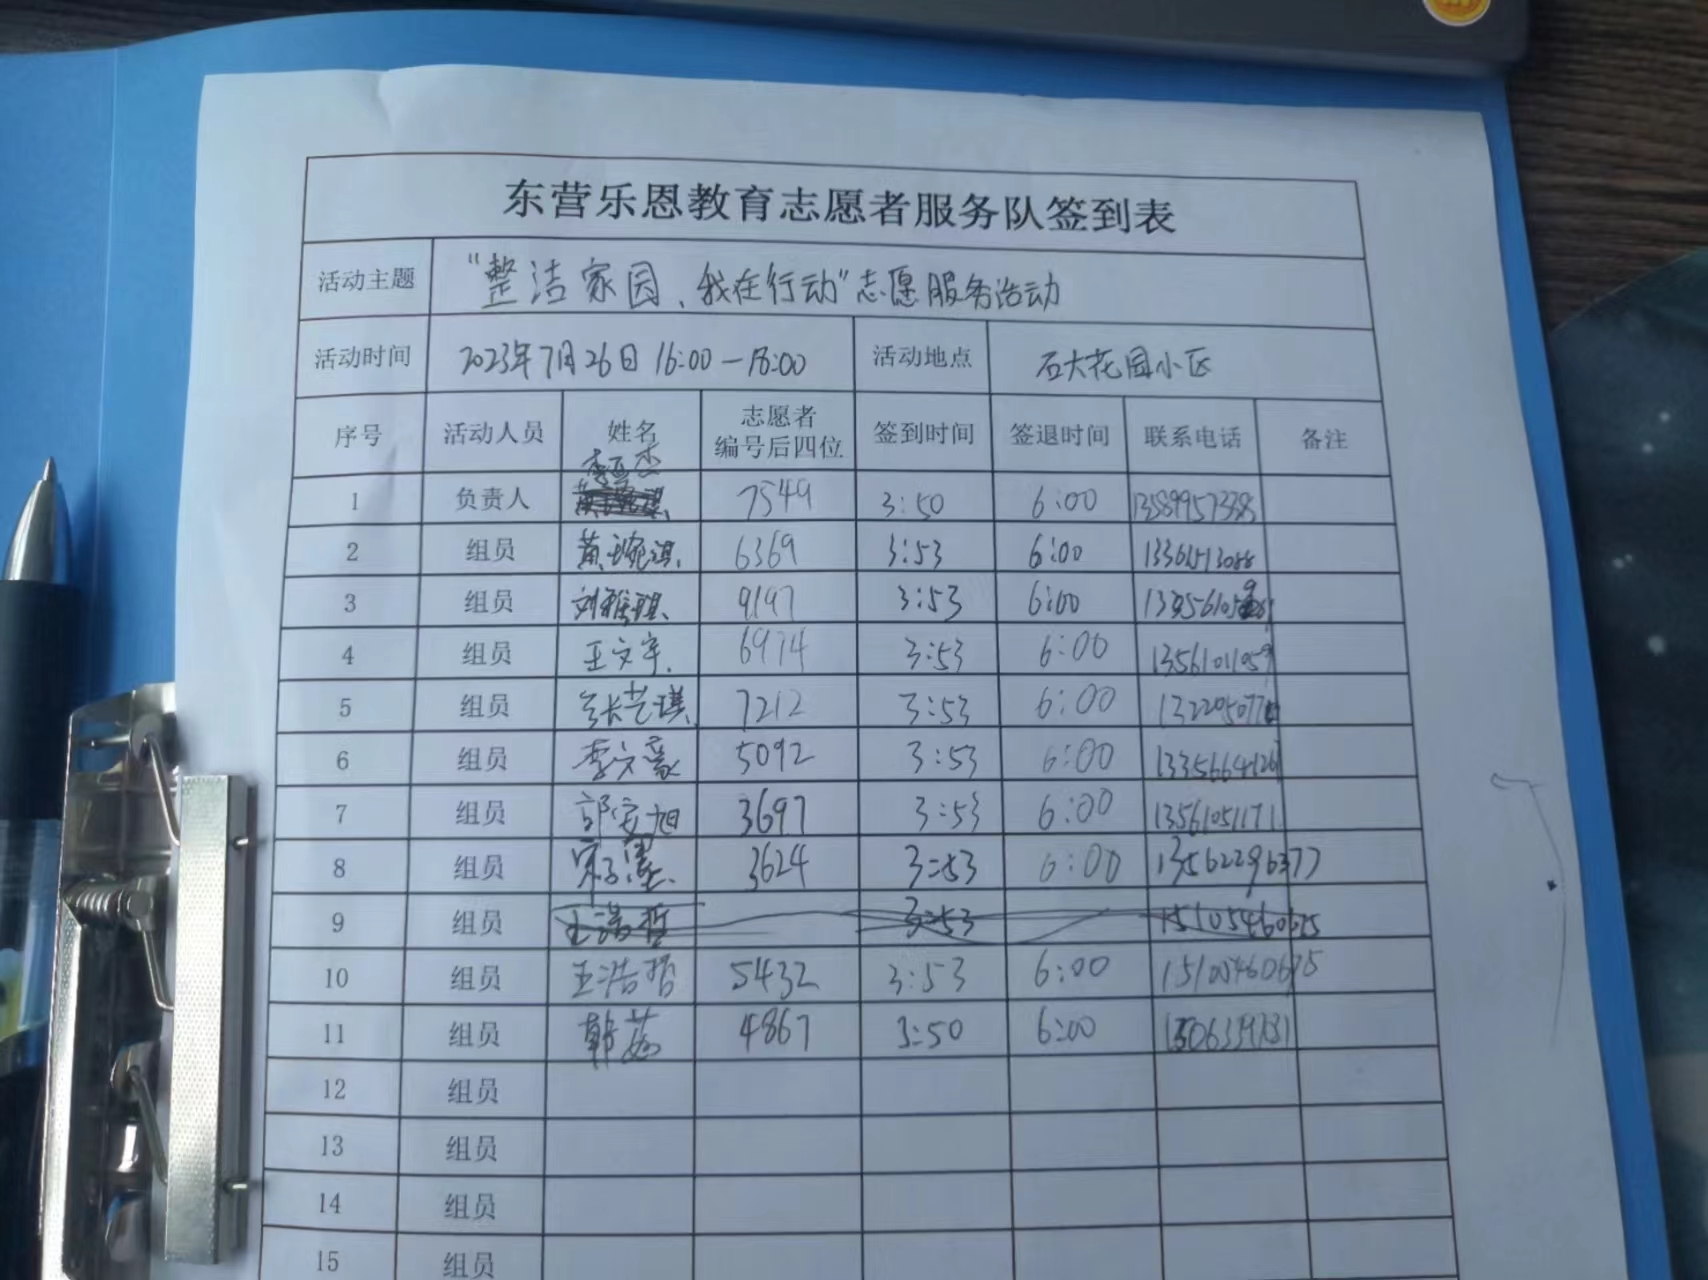 东营乐恩教育志愿者服务队签到表
活动主题 “整洁家园、我在行动”志愿服务活动
活动时间 2023年7月26日 16:00—18:00 活动地点 石大花园小区
序号 活动人员 姓名 志愿者编号后四位 签到时间 签退时间 联系电话 备注
1 负责人 7549 3:50 6:00
2 组员 6369 3:53 6:00
3 组员 9197 3:53 6:00
4 组员 王文宇 6974 3:53 6:00
5 组员 7212 3:53 6:00
6 组员 李文豪 5092 3:53 6:00
7 组员 郭安旭 3697 3:53 6:00 13561051171
8 组员 3624 3:53 6:00 13562296377
9 组员 王浩哲 3:53 15105460675
10 组员 王浩哲 5432 3:53 6:00 15105460675
11 组员 韩茹 4867 3:50 6:00
12 组员
13 组员
14 组员
15 组员